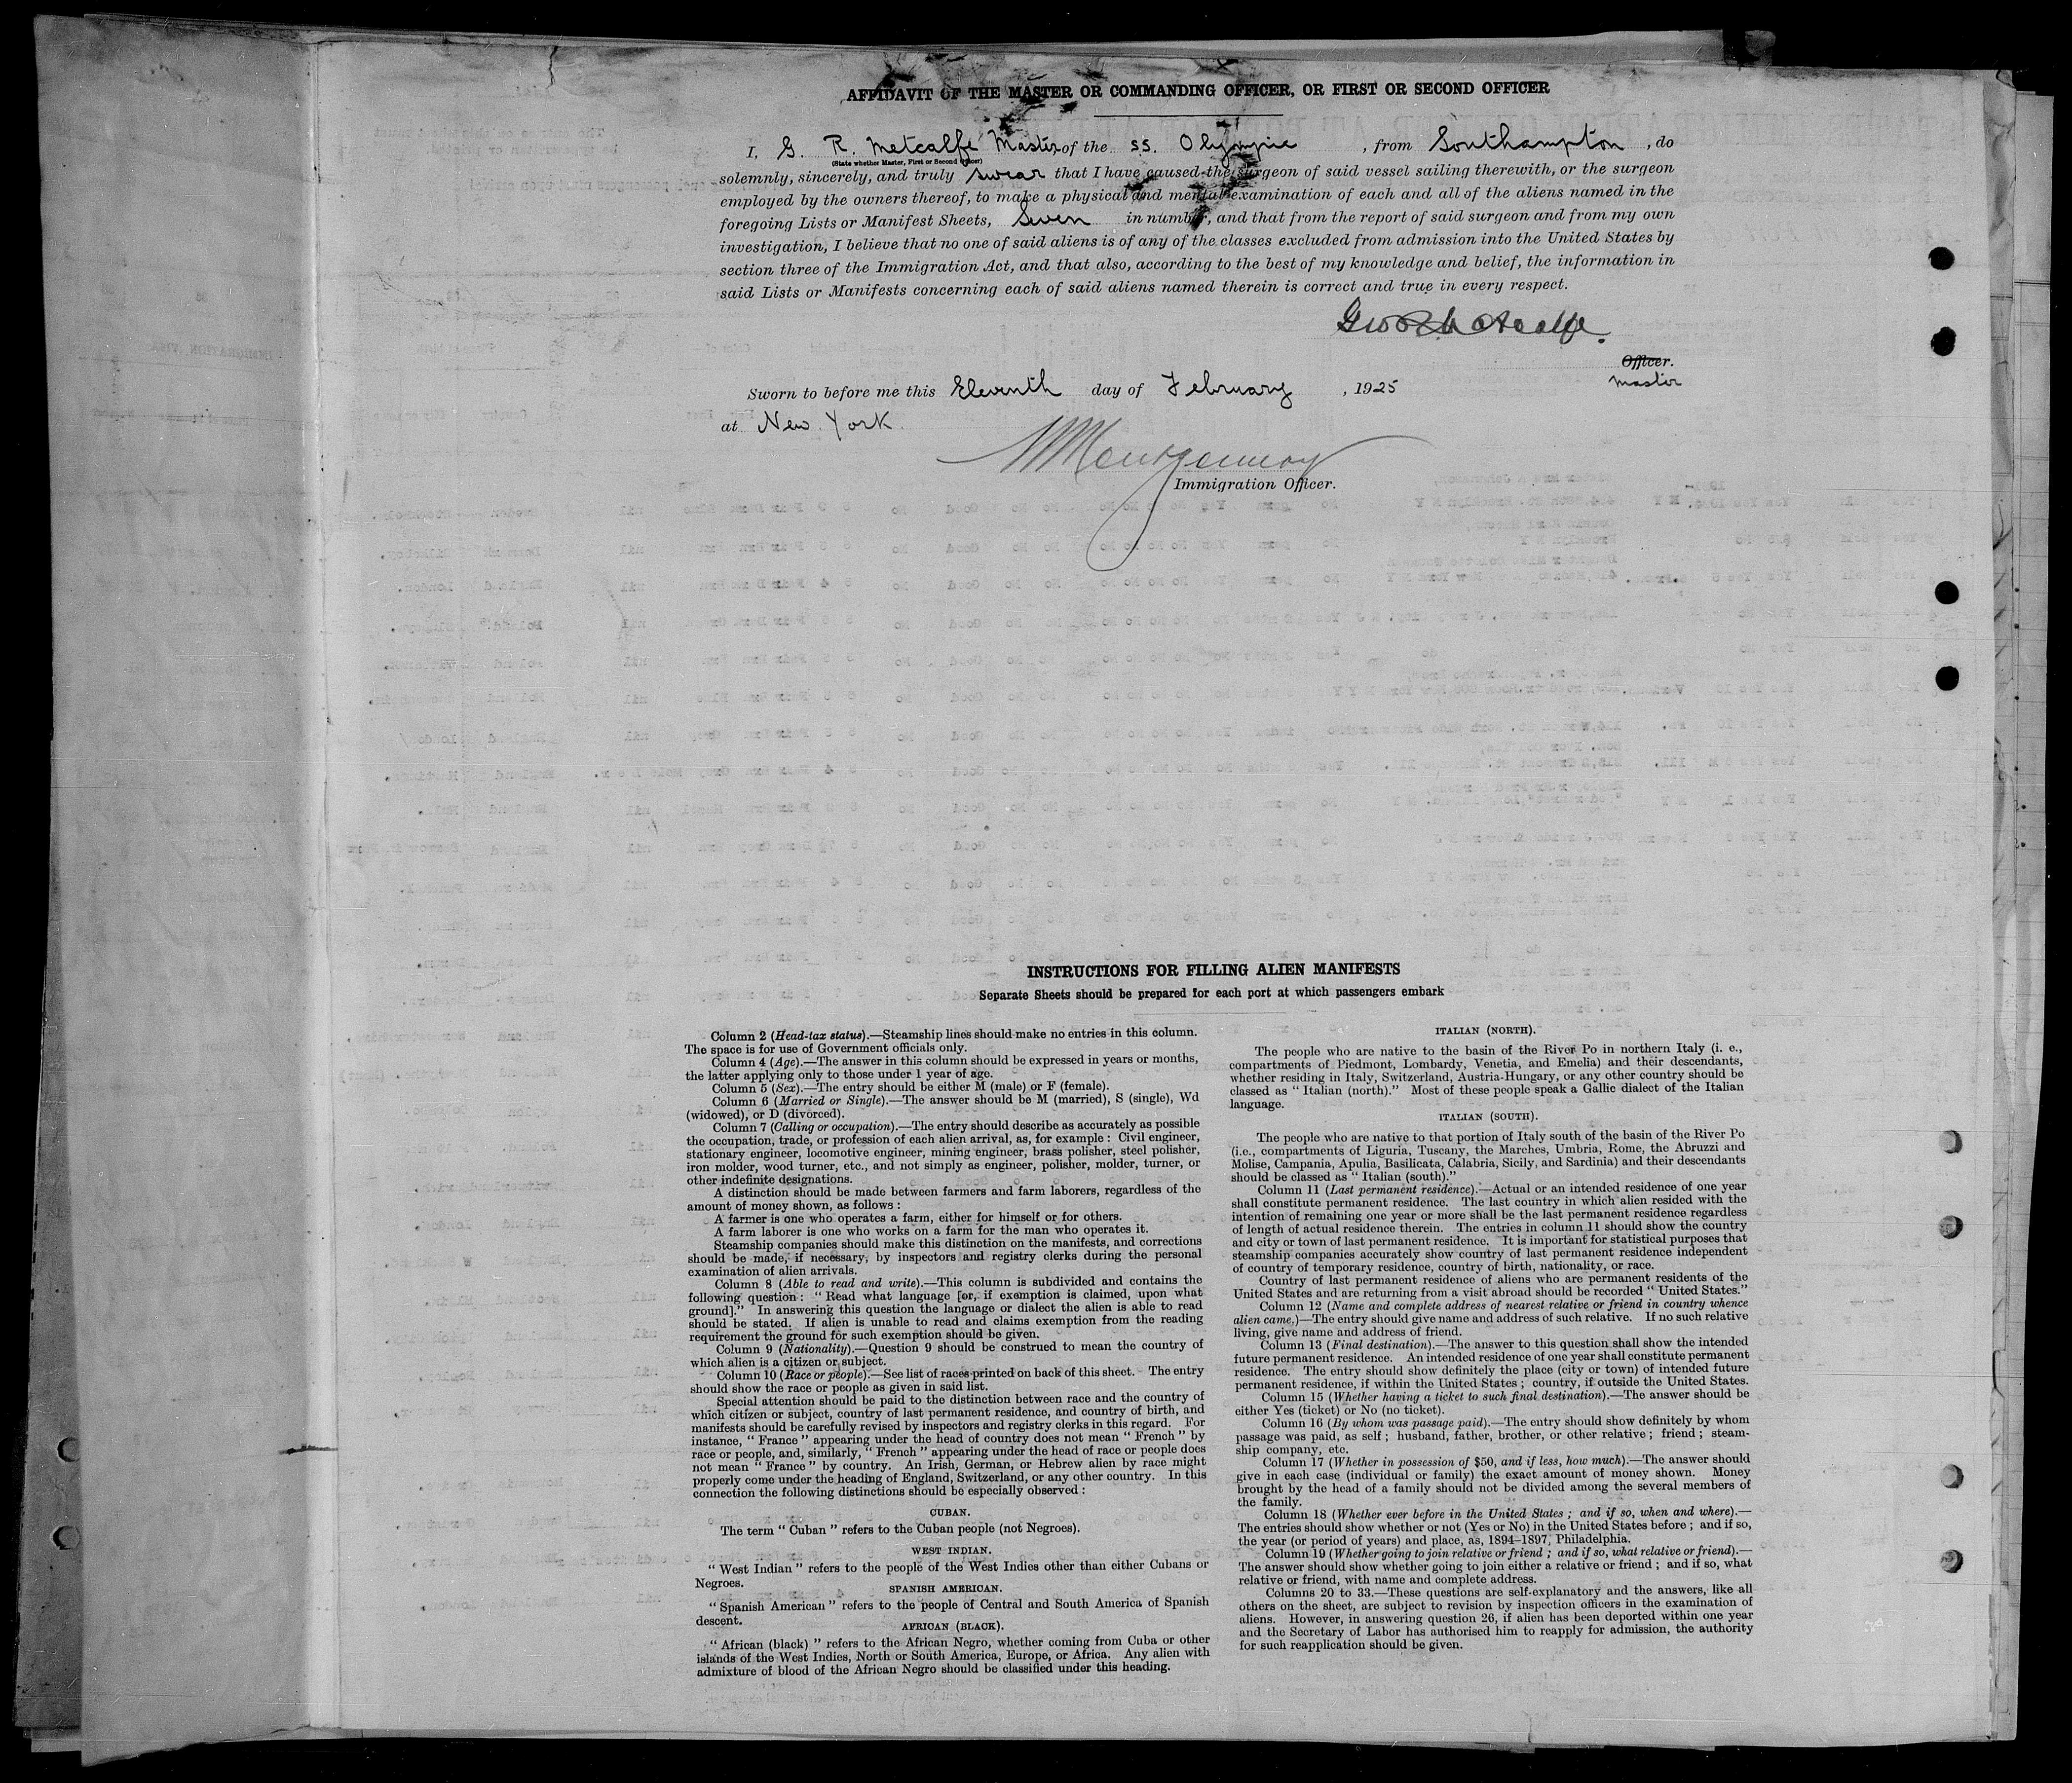 AFFIDAVIT OF THE MASTER OR COMMANDING OFFICER, OR FIRST OR SECOND OFFICER
I, G. R. Metcalfe Master of the ss. Olympic, from Southampton, do
(State whether Master, First or Second Officer)
solemnly, sincerely, and truly swear that I have caused the surgeon of said vessel sailing therewith, or the surgeon
employed by the owners thereof, to make a physical and mental examination of each and all of the aliens named in the
foregoing Lists or Manifest Sheets, Seven in number, and that from the report of said surgeon and from my own
investigation, I believe that no one of said aliens is of any of the classes excluded from admission into the United States by
section three of the Immigration Act, and that also, according to the best of my knowledge and belief, the information in
said Lists or Manifests concerning each of said aliens named therein is correct and true in every respect.
Geo R Metcalfe.
Officer.
Master
Sworn to before me this Eleventh day of February, 1925
at New York
Montgomery
Immigration Officer.
INSTRUCTIONS FOR FILLING ALIEN MANIFESTS
Separate Sheets should be prepared for each port at which passengers embark
Column 2 (Head-tax status).—Steamship lines should make no entries in this column.
The space is for use of Government officials only.
Column 4 (Age).—The answer in this column should be expressed in years or months,
the latter applying only to those under 1 year of age.
Column 5 (Sex).—The entry should be either M (male) or F (female).
Column 6 (Married or Single).—The answer should be M (married), S (single), Wd
(widowed), or D (divorced).
Column 7 (Calling or occupation).—The entry should describe as accurately as possible
the occupation, trade, or profession of each alien arrival, as, for example : Civil engineer,
stationary engineer, locomotive engineer, mining engineer, brass polisher, steel polisher,
iron molder, wood turner, etc., and not simply as engineer, polisher, molder, turner, or
other indefinite designations.
A distinction should be made between farmers and farm laborers, regardless of the
amount of money shown, as follows :
A farmer is one who operates a farm, either for himself or for others.
A farm laborer is one who works on a farm for the man who operates it.
Steamship companies should make this distinction on the manifests, and corrections
should be made, if necessary, by inspectors and registry clerks during the personal
examination of alien arrivals.
Column 8 (Able to read and write).—This column is subdivided and contains the
following question : “ Read what language [or, if exemption is claimed, upon what
ground].” In answering this question the language or dialect the alien is able to read
should be stated. If alien is unable to read and claims exemption from the reading
requirement the ground for such exemption should be given.
Column 9 (Nationality).—Question 9 should be construed to mean the country of
which alien is a citizen or subject.
Column 10 (Race or people).—See list of races printed on back of this sheet. The entry
should show the race or people as given in said list.
Special attention should be paid to the distinction between race and the country of
which citizen or subject, country of last permanent residence, and country of birth, and
manifests should be carefully revised by inspectors and registry clerks in this regard. For
instance, “ France ” appearing under the head of country does not mean “ French ” by
race or people, and, similarly, “ French ” appearing under the head of race or people does
not mean “ France ” by country. An Irish, German, or Hebrew alien by race might
properly come under the heading of England, Switzerland, or any other country. In this
connection the following distinctions should be especially observed :
CUBAN.
The term “ Cuban ” refers to the Cuban people (not Negroes).
WEST INDIAN.
“ West Indian ” refers to the people of the West Indies other than either Cubans or
Negroes.
SPANISH AMERICAN.
“ Spanish American ” refers to the people of Central and South America of Spanish
descent.
AFRICAN (BLACK).
“ African (black) ” refers to the African Negro, whether coming from Cuba or other
islands of the West Indies, North or South America, Europe, or Africa. Any alien with
admixture of blood of the African Negro should be classified under this heading.
ITALIAN (NORTH).
The people who are native to the basin of the River Po in northern Italy (i. e.,
compartments of Piedmont, Lombardy, Venetia, and Emelia) and their descendants,
whether residing in Italy, Switzerland, Austria-Hungary, or any other country should be
classed as “ Italian (north).” Most of these people speak a Gallic dialect of the Italian
language.
ITALIAN (SOUTH).
The people who are native to that portion of Italy south of the basin of the River Po
(i.e., compartments of Liguria, Tuscany, the Marches, Umbria, Rome, the Abruzzi and
Molise, Campania, Apulia, Basilicata, Calabria, Sicily, and Sardinia) and their descendants
should be classed as “ Italian (south).”
Column 11 (Last permanent residence).—Actual or an intended residence of one year
shall constitute permanent residence. The last country in which alien resided with the
intention of remaining one year or more shall be the last permanent residence regardless
of length of actual residence therein. The entries in column 11 should show the country
and city or town of last permanent residence. It is important for statistical purposes that
steamship companies accurately show country of last permanent residence independent
of country of temporary residence, country of birth, nationality, or race.
Country of last permanent residence of aliens who are permanent residents of the
United States and are returning from a visit abroad should be recorded “ United States.”
Column 12 (Name and complete address of nearest relative or friend in country whence
alien came.)—The entry should give name and address of such relative. If no such relative
living, give name and address of friend.
Column 13 (Final destination).—The answer to this question shall show the intended
future permanent residence. An intended residence of one year shall constitute permanent
residence. The entry should show definitely the place (city or town) of intended future
permanent residence, if within the United States ; country, if outside the United States.
Column 15 (Whether having a ticket to such final destination).—The answer should be
either Yes (ticket) or No (no ticket).
Column 16 (By whom was passage paid).—The entry should show definitely by whom
passage was paid, as self ; husband, father, brother, or other relative ; friend ; steam-
ship company, etc.
Column 17 (Whether in possession of $50, and if less, how much).—The answer should
give in each case (individual or family) the exact amount of money shown. Money
brought by the head of a family should not be divided among the several members of
the family.
Column 18 (Whether ever before in the United States ; and if so, when and where).—
The entries should show whether or not (Yes or No) in the United States before ; and if so,
the year (or period of years) and place, as, 1894–1897, Philadelphia.
Column 19 (Whether going to join relative or friend ; and if so, what relative or friend).—
The answer should show whether going to join either a relative or friend ; and if so, what
relative or friend, with name and complete address.
Columns 20 to 33.—These questions are self-explanatory and the answers, like all
others on the sheet, are subject to revision by inspection officers in the examination of
aliens. However, in answering question 26, if alien has been deported within one year
and the Secretary of Labor has authorised him to reapply for admission, the authority
for such reapplication should be given.